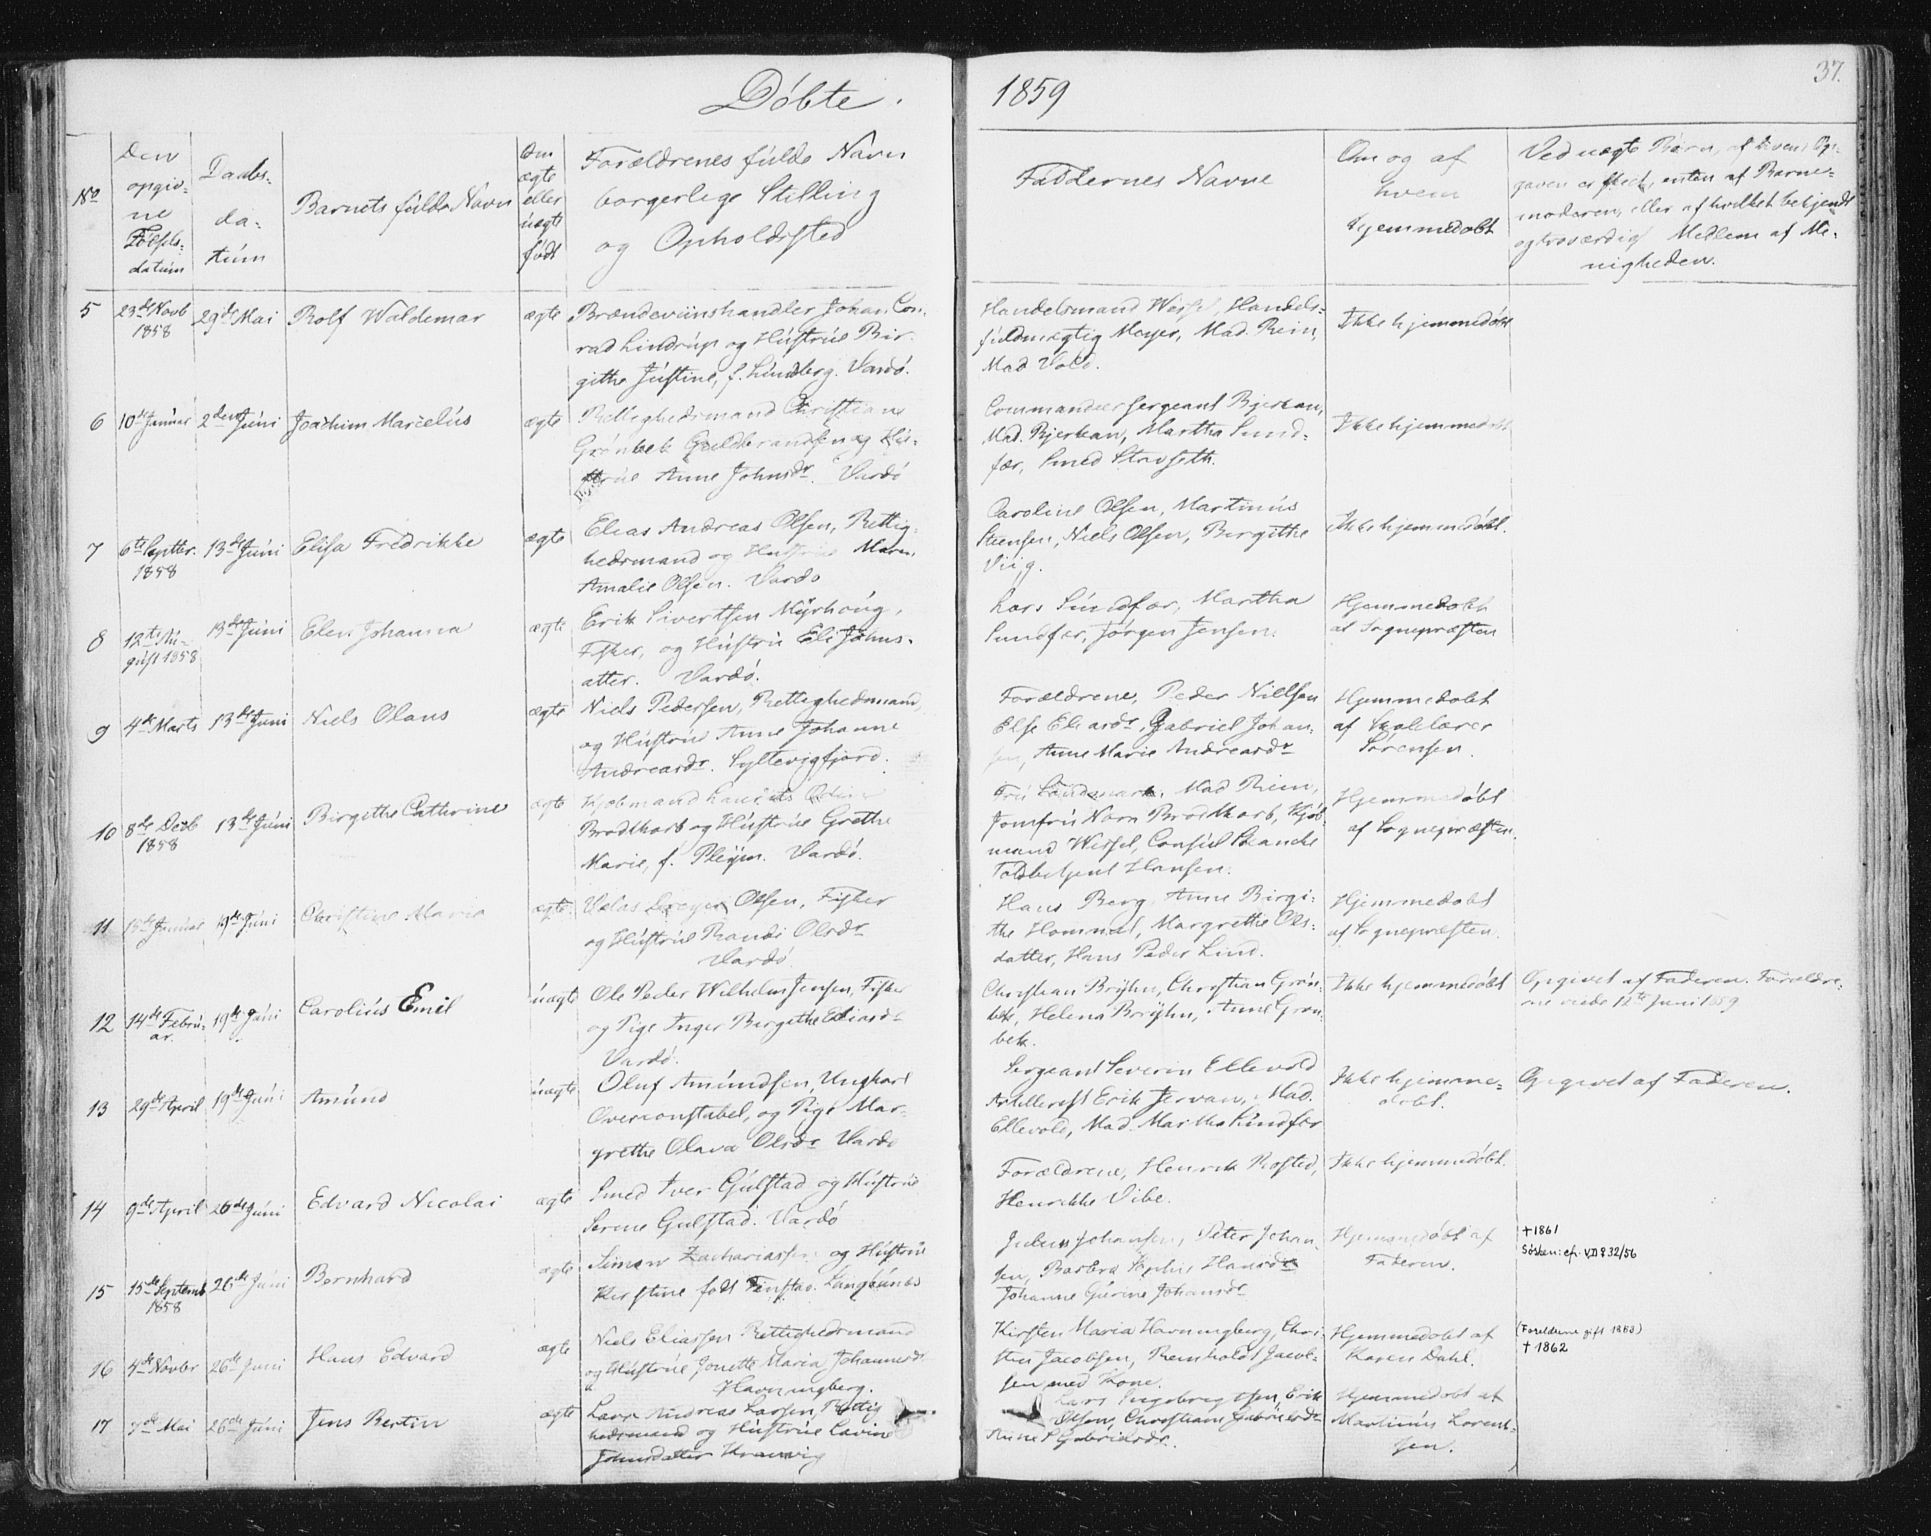 Döbte.
1859
37.
No
Den opgivne Födselsdatum
Daabsdatum
Barnets fulde Navn
Om ægte eller uægte födt
Forældrenes fulde Navn
borgerlige Stilling
og Opholdssted
Faddernes Navne
Om og af
hvem
hjemmedöbt
Ved uægte Börn, af hvem Op-
gaven er skeet, enten af Barne-
moderen, eller af hvilket bekjendt
og troværdigt Medlem af Me-
nigheden.
5 23de Novb 1858 29de Mai Rolf Waldemar ægte
Brændeviinshandler Johan Con-
rad Lindrup og Hústrúe Bir-
githe Jústine, f. Lúndberg. Vardö.
Handelsmand Wessel, Handels-
fúldmægtig Meyer, Mad. Rein,
Mad Vold.
Ikke hjemmedöbt
6 10de Januar 2den Júni Joachim Marcelús ægte
Rettighedsmand Christiane
Grönbek Guldbrandsen og Hú-
strúe Anne Johnsdr. Vardö
Commandeersergeant Bjerkan,
Mad. Bjerkan, Martha Sund-
fær, Smed Stavseth.
Ikke hjemmedöbt
7 6te Septbr. 1858 13de Júni Elisa Fredrikke ægte
Elias Andreas Olsen, Rettig-
hedsmand og Hustrúe Maren
Amalie Olsen. Vardö
Caroline Olsen, Martinús
Steensen, Niels Olsen, Birgithe
Viig.
Ikke hjemmedöbt.
8 12te Au-
gúst 1858 13de Júni Elen Johanna ægte
Erik Sivertsen Myrhoúg,
Fisker, og Hústrú Eli Johns-
atter. Vardö.
Lars Súndfær, Martha
Sundfær, Jörgen Jensen.
Hjemmedöbt
af Sognepræsten
9 4de Marts 13de Júni Niels Olaus ægte
Niels Pedersen, Rettighedsmand
og Hústrúe Anne Johanne
Andreasdr. Syltevigfjord.
Forældrene, Peder Nillsen
Else Eliasdr, Gabriel Johan-
sen, Anne Marie Andreasdr
Hjemmedöbt
af Skolelærer
Sörensen.
10 8de Decb 1858 13de Júni Birgithe Cathrine ægte
Kjöbmand Laurits
Brodtkorb og Hústrúe Grethe
Marie, f. Pleym. Vardö.
Mad Rein,
Jomfrú Brodtkorb, Kjöb-
mand Wessel, Consúl Brancke
Toldbetjent Hansen.
Hjemmedöbt
af Sognepræsten.
11 Januar 19de Júni Christine Maria ægte
Dreyer Olsen, Fisker
og Hústrúe Randi Olsdr
Vardö
Hans Berg, Anne Birgi-
the Hommel, Margrethe Ols-
datter, Hans Peder Lind.
Hjemmedöbt
af Sognepræsten.
12 14de Febrú-
ar. 19de Júni Carolius Emil uægte
Ole Peder Wilhelm Jensen, Fisker
og Pige Inger Birgithe Eliasdr
Vardö.
Christian Brýhn, Christian Grön-
bek, Helena Brýhn, Anne Grön-
bek.
Ikke hjemmedöbt
Opgivet af Faderen. Forældre-
ne viede 12te Juni 1859
13 29de April 19de Júni Amúnd uægte
Oluf Amúndsen, Ungkarl
Overconstabel, og Pige Mar-
grethe Olava Olsdr Vardö
Sergeant Severin Ellevold
Artillerist Erik Jervan, Mad.
Ellevold, Mad. Martha Súndfær
Ikke hjemme-
döbt.
Opgivet af Faderen.
14 9de April 26de Júni Edvard Nicolai ægte
Smed Iver Gúlstad og Hústrúe
Serine Gulstad. Vardö
Forældrene, Henrik Rosted,
Henrikke Vibe.
Ikke hjemmedöbt.
15 15de Septemb 1858 26de Júni Bernhard ægte
Simon Zachariassen og Hústrúe
Kirstine födt Finstad. Langbúnes
Julius Johansen, Peter Johan-
sen, Barbra Sophie Hansdr
Johanne Gúrine Johansdr
Hjemmedöbt af
Faderen.
†1861
Sösken: cf. VD 832/56
16 4de Novbr 26de Juni Hans Edvard ægte
Niels Eliassen Rettighedsmand
og Hústrúe Jonette Maria Johannesdr
Havningberg.
Kirsten Maria Havningberg, Chri-
stin Jacobsen, Reinholdt Jacob-
sen med Kone.
Hjemmedöbt af
Karen Dahl.
(Foreldrene gift 1863)
† 1862
17 7de Mai 26de Júni Jens Bertin ægte
Lars Andreas Larsen, Rettig-
hedsmand og Hústrúe Lavine
Johnsdatter Kramvig
Lars Ingebregtsen, Erik
Olsen, Christiane Gabrielsdr
Anne Gabrielsdr.
Hjemmedöbt af
Martinús Lorent-
sen.